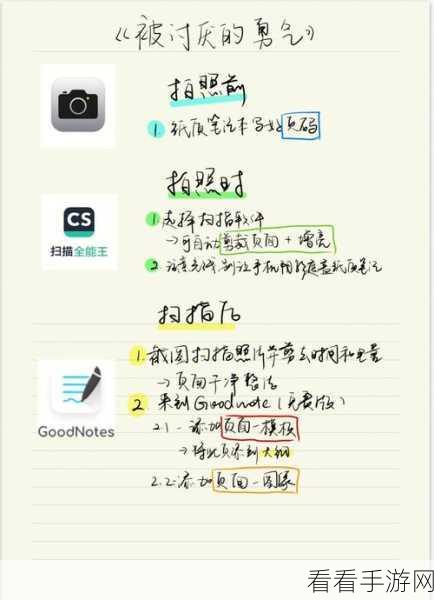 《被讨厌的勇气》
拍照前
1. 纸质笔记本写好页码
拍照时
CS
扫描全能王
1. 选择扫描软件
→可自动剪裁页面+增亮
2. 注意光线,别让手机阴影覆盖纸质笔记
扫描后
1. 截图扫描照片并剪去时间和电量
→页面干净整洁
2. 来到Goodnote(免费版)
GoodNotes
2.1 添加页面-模板
→将此页添到大纲
2.2 添加页面-图像
看看手游网